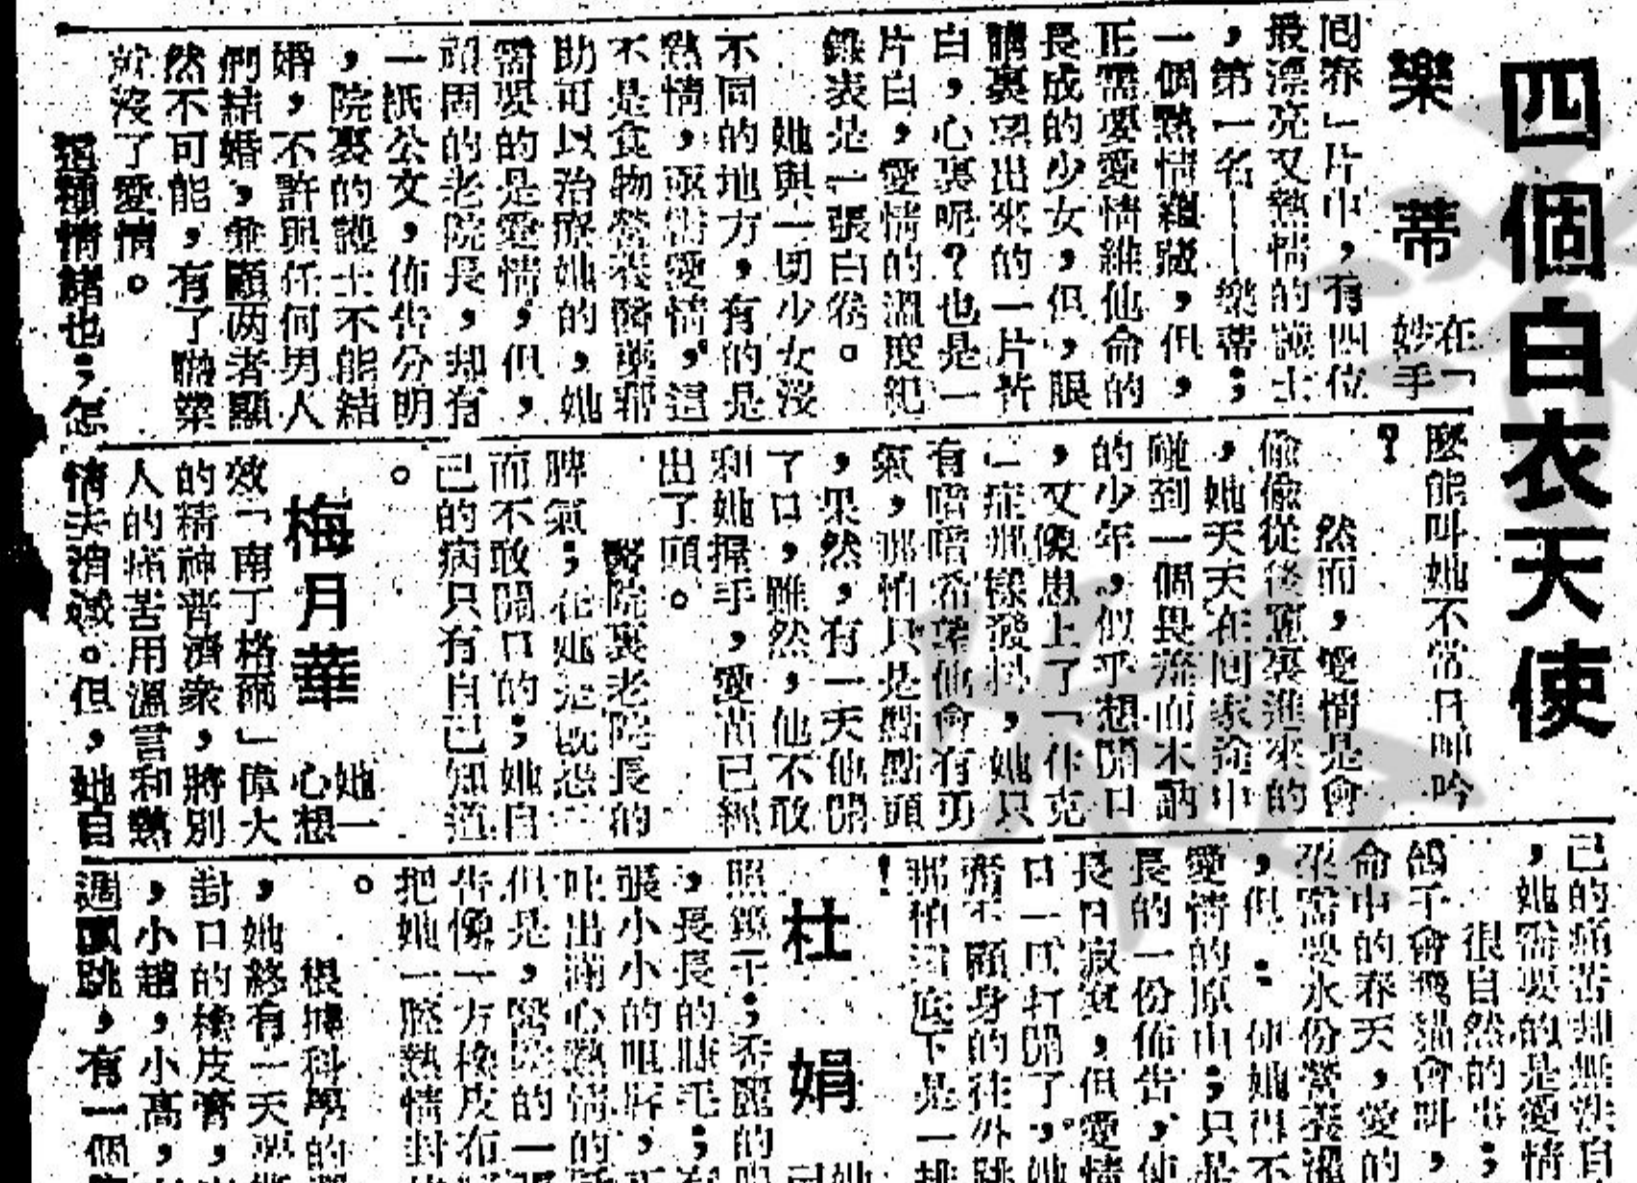 四個白衣天使
樂蒂
在「
妙手
回春」片中，有四位
最漂亮又熱情的護士
，第一名——樂蒂；
一個熱情蘊藏，但，
正需要愛情維他命的
長成的少女，但，眼
睛裏望出來的一片青
白，心裏呢？也是一
片白，愛情的溫度紀
錄表是一張白卷。
她與一切少女沒
不同的地方，有的是
熱情，亟需愛情，這
不是食物營養醫藥那
助可以治療她的，她
需要的是愛情，但，
頑固的老院長，却有
一紙公文，佈告分明
，院裏的護士不能結
婚，不許與任何男人
們結婚，兼顧两者顯
然不可能，有了職業
就沒了愛情。
這種情緒也；怎
麽能叫她不常日呻吟
？
然而，愛情是會
偷偷從後窗裏進來的
，她天天在回家途中
碰到一個畏羞而木訥
的少年，似乎想開口
，又像患上了「休克
」症那樣發抖，她只
有暗暗希望他會有勇
氣，那怕只是點點頭
，果然，有一天他開
了口，雖然，他不敢
和她握手，愛苗已經
出了頭。
醫院裏老院長的
脾氣；在她是既恐
而不敢開口的；她自
己的病只有自己知道
。
梅月華
她一
心想
效「南丁格爾」偉大
的精神普濟衆，將別
人的痛苦用溫言和熱
情去消滅。但，她自
己的痛苦却無法自
，她需要的是愛情
很自然的事；
鴿子會飛貓會叫，
命中的春天，愛的
來需要水份營養
，但：使她得不
愛情的原由；只是
長的一份佈告，使
長日寂寞，但愛情
口一旦打開了，她
不顧身的往外跳
那怕 底下是一
！
杜娟
她
照鏡子；秀麗的
，長長的睫毛；
張小小的咀唇，
吐出滿心熱情的
但是，醫院的一張
告像一方橡皮布
把她一腔熱情封
。
根據科學的
，她終有一天
對口的橡皮膏，
，小趙，小高，
週 跳，有一個